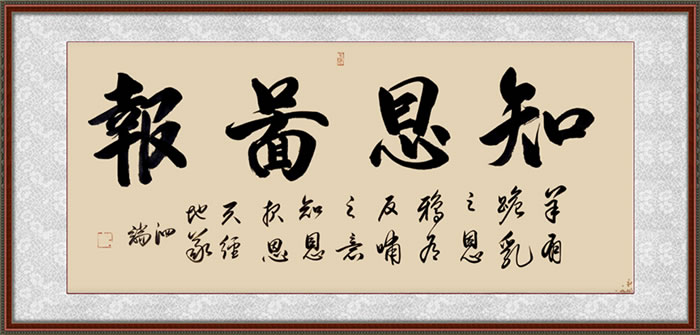 知恩圖報
羊有
跪乳
之恩
鴉有
反哺
之意
知恩
报恩
天經
地義
泗